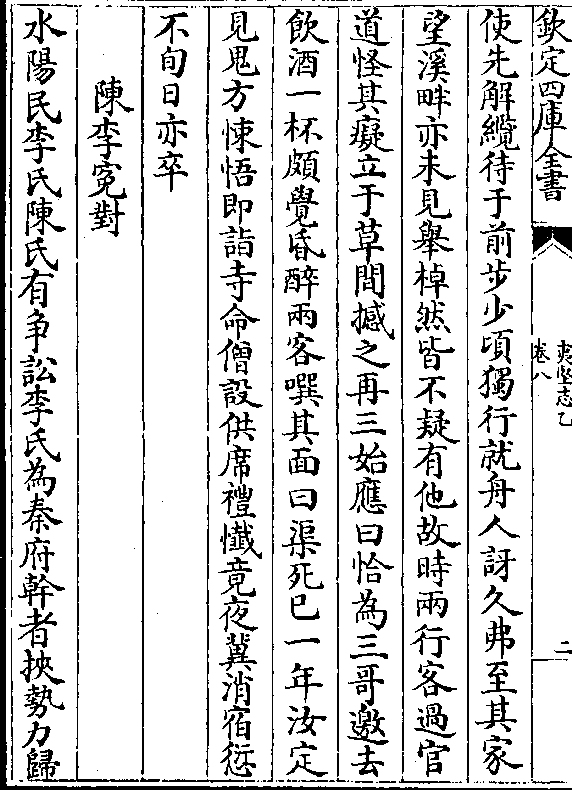 欽定四庫全書
夷堅志乙
卷八
二
使先解纜待于前步少頃獨行就舟人訝久弗至其家
望溪畔亦未見舉棹然皆不疑有他故時兩行客過官
道怪其癡立于草間撼之再三始應曰恰為三哥邀去
飲酒一杯頗覺昏醉兩客噀其面曰渠死已一年汝定
見鬼方悚悟即詣寺命僧設供席禮懺竟夜冀消宿愆
不旬日亦卒
陳李寃對
水陽民李氏陳氏有爭訟李氏為秦府幹者挾勢力歸